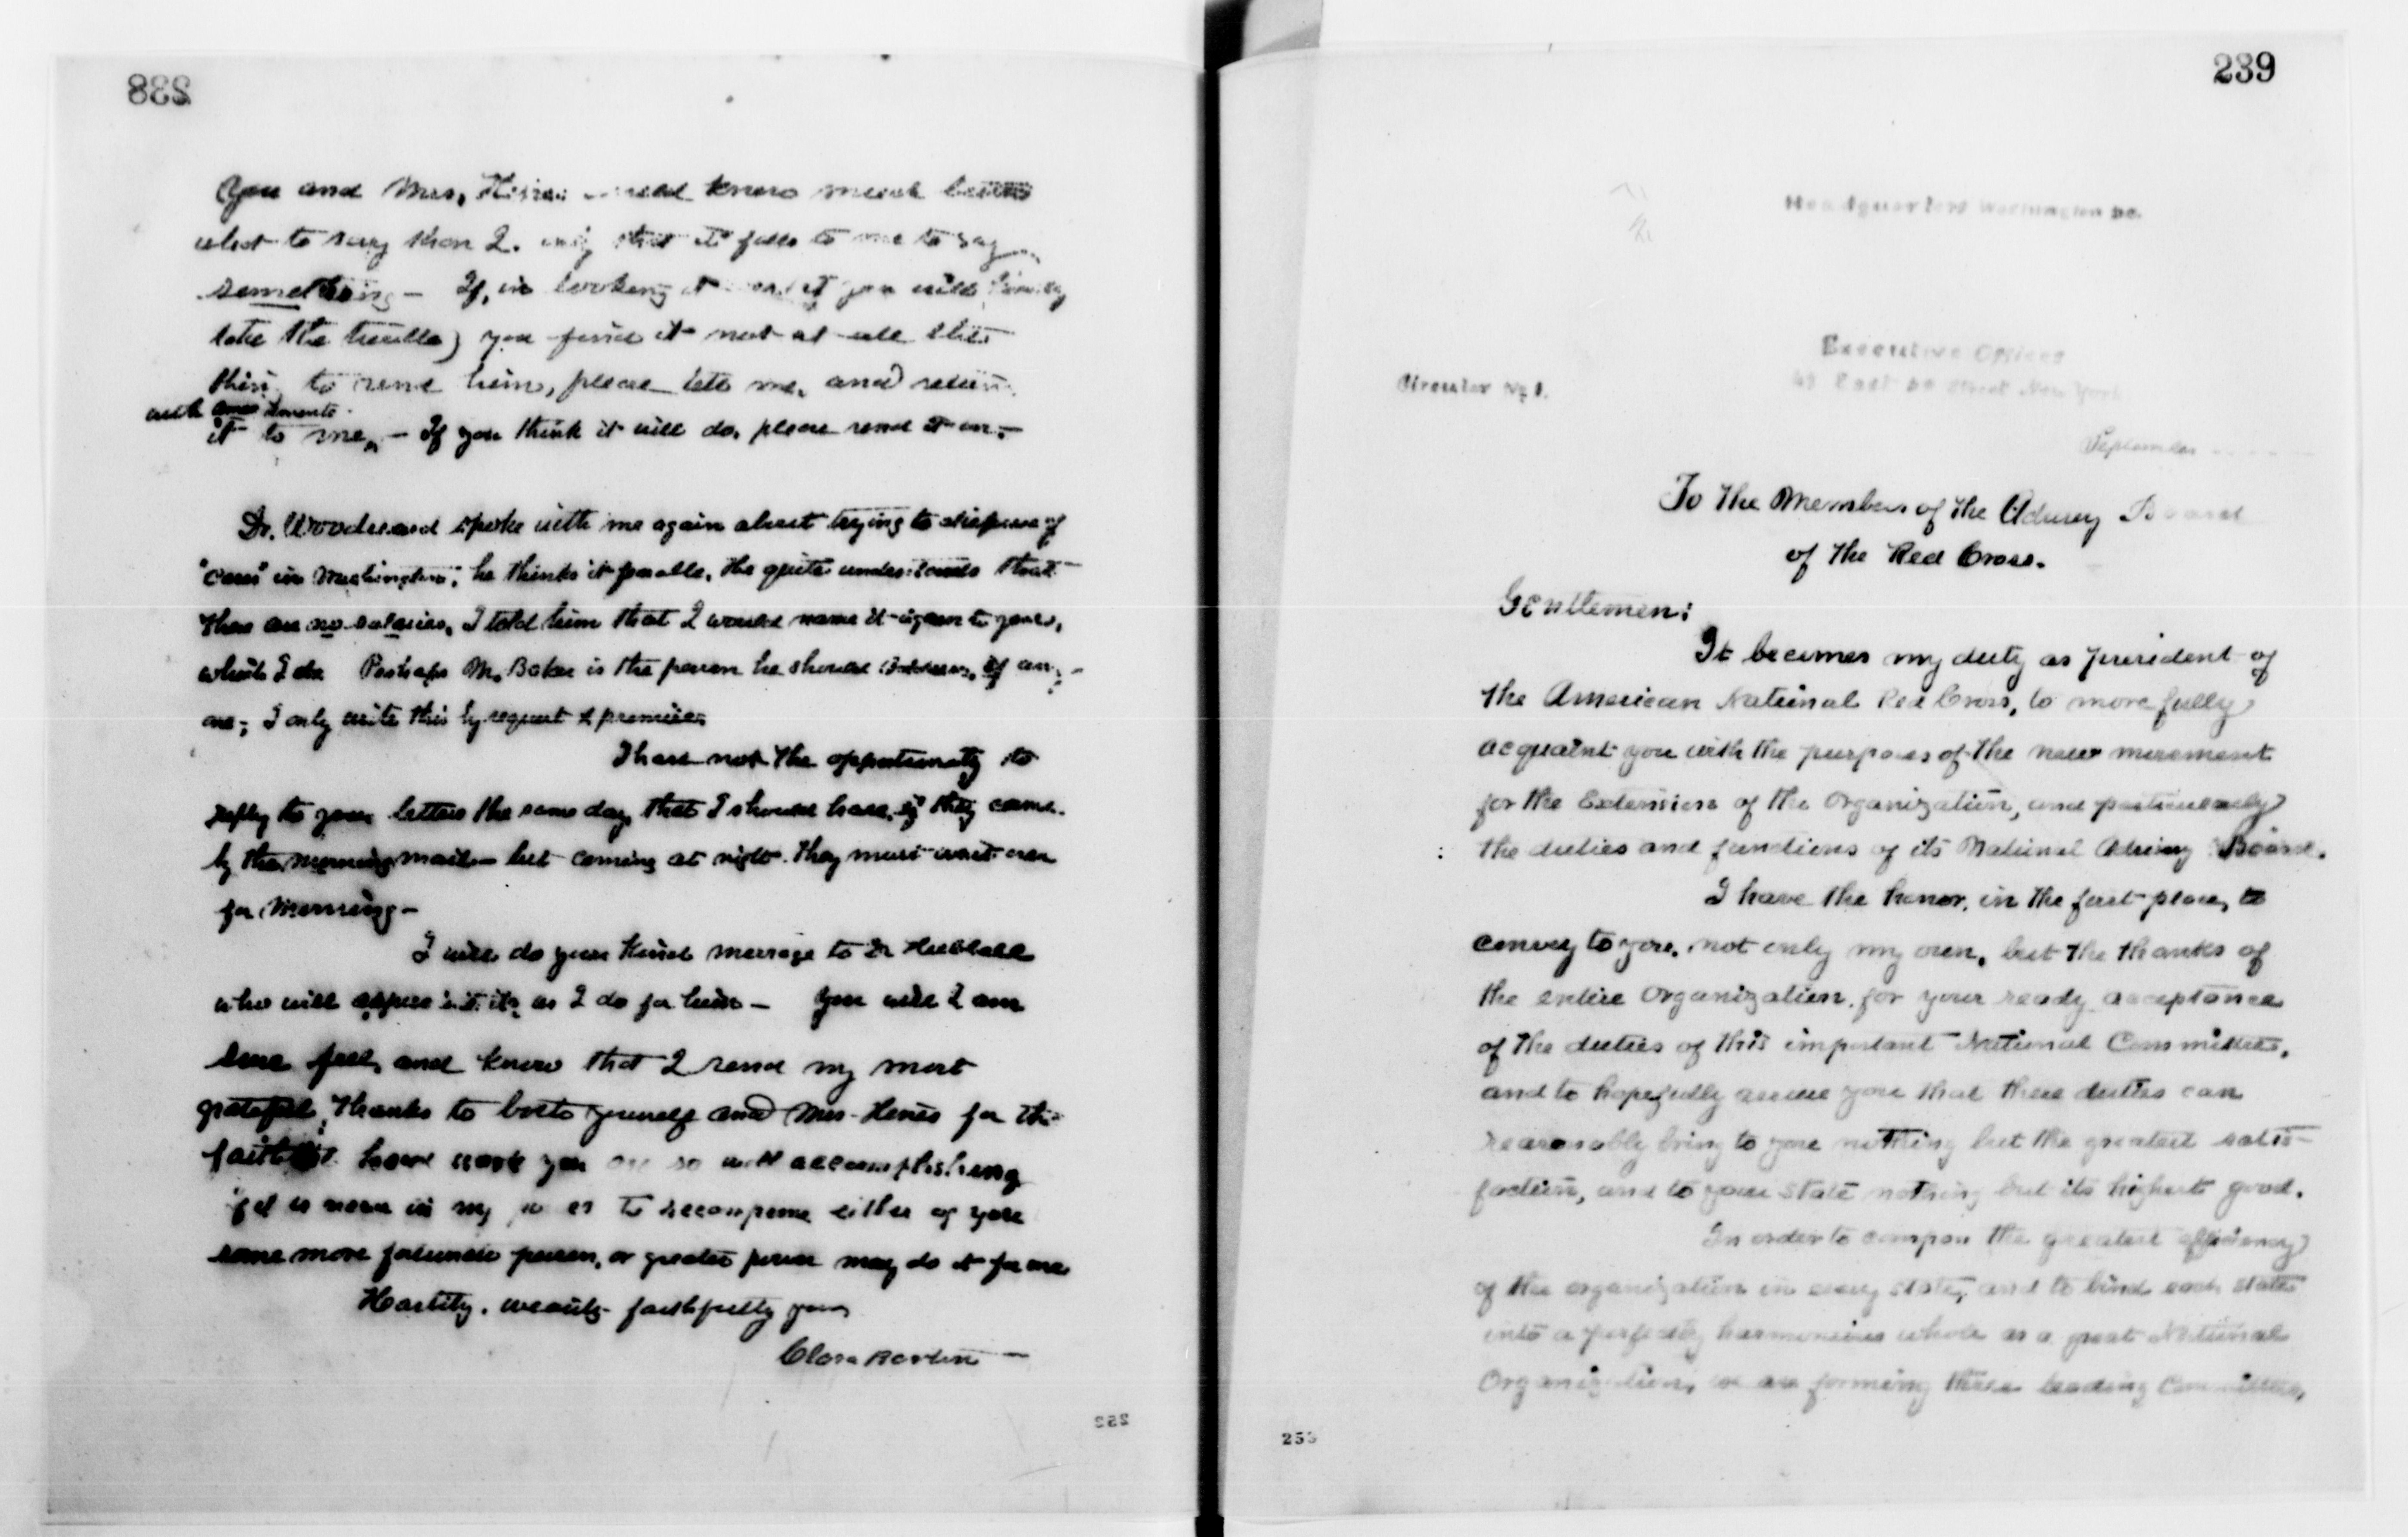 238
You and Mrs. know much better
what to say than I. only that it falls to me to say
something – If, in looking it you will kindly
take the trouble) you find it not at all the
thing to send him, please tell me, and return
with amendments
it to me, – If you think it will do, please send it on. –
Dr. Woodward spoke with me again about trying to dispose of
"Cares" in Washington; he thinks it possible. He quite understands that
there are no salaries, I told him that I would name it again to you,
which I do. Perhaps Mr. Baker is the person he should address, if any
one; I only write this by request & promise.
I have not the opportunity to
reply to your letters the same day, that I should have, if they came
by the morning mail – but coming at night. they must wait over
for morning –
I will do your kind message to Dr Hubbell
who will appreciate it, as I do for him – You will I am
sure feel, and know that I send my most
grateful, thanks to both yourself and Mrs. Hines for the
hard work you are so well accomplishing
if it is never in my power to recompense either of you
some more fortunate person, or greater power may do it for me
Heartily. faithfully yours
Clara Barton –
252
239
Headquarters Washington DC.
Executive Offices
East Street New York
Circular No 1.
September
To the Members of the Advisory Board
of the Red Cross.
Gentlemen:
It becomes my duty as president of
the American National Red Cross, to more fully
acquaint you with the purposes of the new movement
for the Extension of the Organization, and particularly
the duties and functions of its National Advisory Board.
I have the honor, in the first place, to
convey to you, not only my own, but the thanks of
the entire Organization, for your ready acceptance
of the duties of this important National Committee,
and to hopefully assure you that these duties can
reasonably bring to you nothing but the greatest satis-
faction, and to your state nothing but its highest good.
In order to compass the greatest efficiency
of the organization in every state, and to bind each state
into a perfectly harmonious whole as a great National
Organization, we are forming these leading Committees,
253